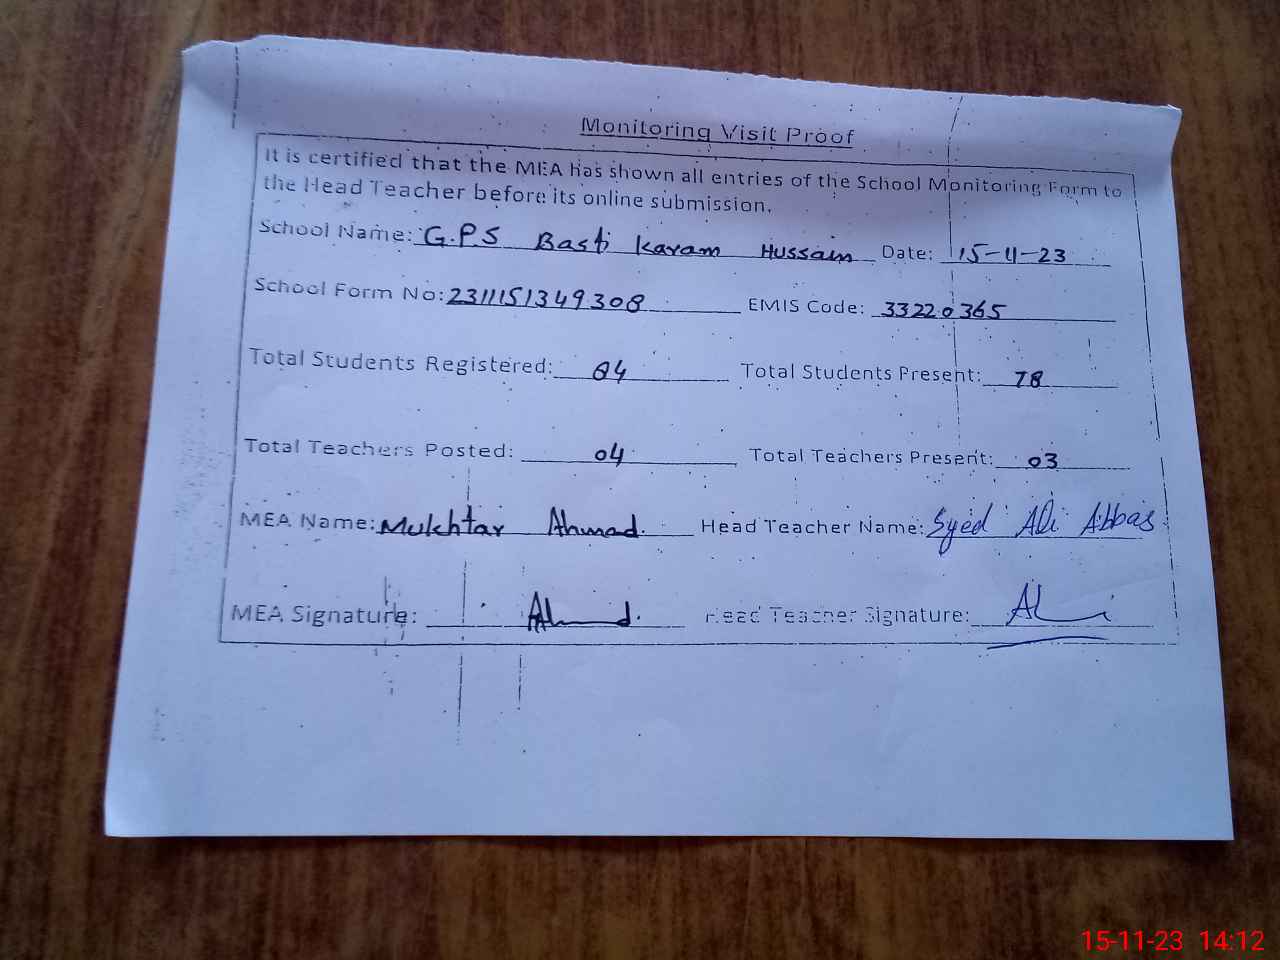 Monitoring Visit Proof
It is certified that the MEA has shown all entries of the School Monitoring Form to
the Head Teacher before its online submission.
School Name: G.P.S Basti Karam Hussain Date: 15-11-23
School Form No: 2311151349308 EMIS Code: 33220365
Total Students Registered: 84 Total Students Present: 78
Total Teachers Posted: 04 Total Teachers Present: 03
MEA Name: Mukhtar Ahmad. Head Teacher Name: Syed Ali Abbas
MEA Signature: Ahmad. Head Teacher Signature: Ali
15-11-23 14:12